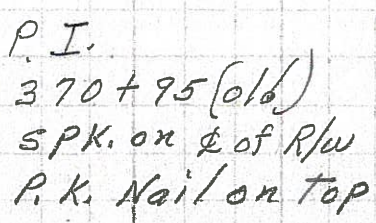 P. I.
370+95 (old)
SPK. on ℄ of R/W
P. K. Nail on Top